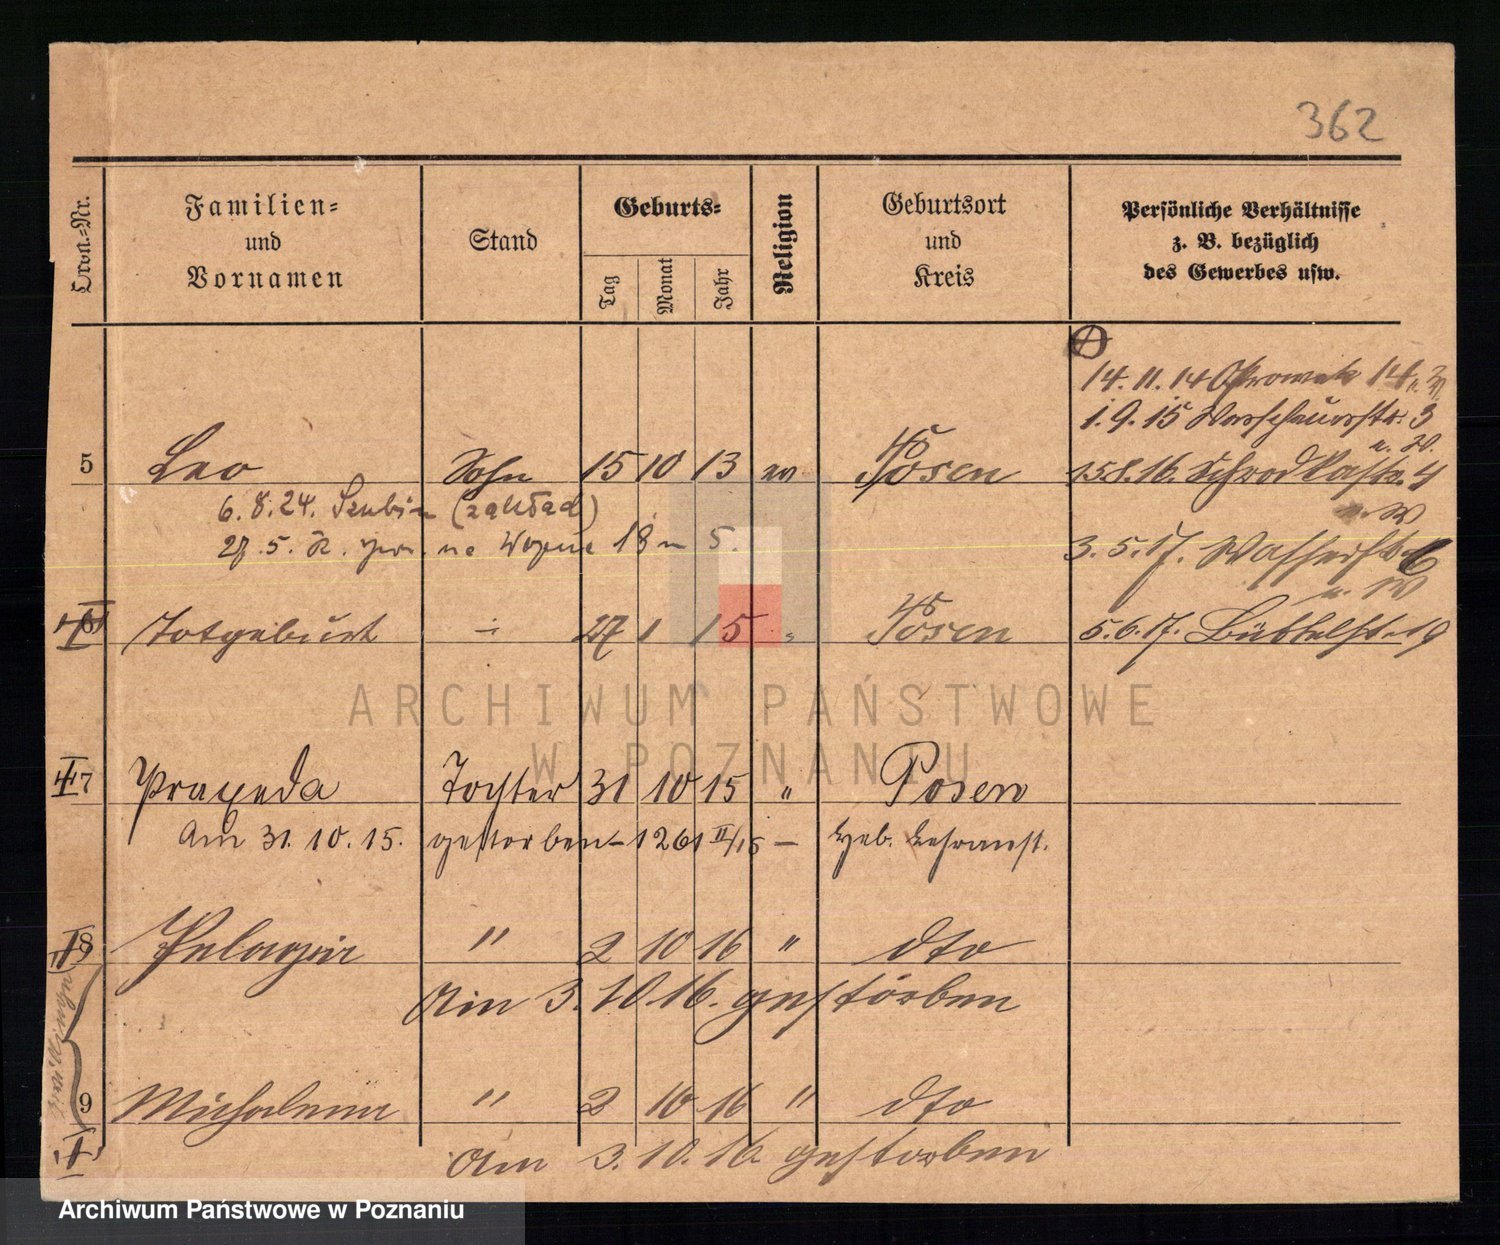 362
Familien=
und
Vornamen
Stand
Geburts=
Tag
Monat
Jahr
Religion
Geburtsort
und
Kreis
Persönliche Verhältnisse
z. B. bezüglich
des Gewerbes usw.
14. 11. 14 14
1. 9. 15 Warschauerstr. 3
5 Leo Sohn 15 10 13 Posen
15.8.16. 4
6. 8. 24. Szubin (zakład)
27. 5. 18 5.
3. 5. 17. Wasserstr. 6
6 Totgeburt 27 1 15 " Posen
5. 6. 17. Büttelstr. 19
ARCHIWUM PAŃSTWOWE
W POZNANIU
7 Praxeda Tochter 31 10 15 " Posen
Am 31. 10. 15. gestorben – 1261 II/15 – Heb. Lehranst.
8 Pelagia " 2 10 16 " dto
Am 3. 10. 16. gestorben
Zwillinge
9 Michalina " 2 10 16 " dto
Am 3. 10. 16. gestorben
Archiwum Państwowe w Poznaniu